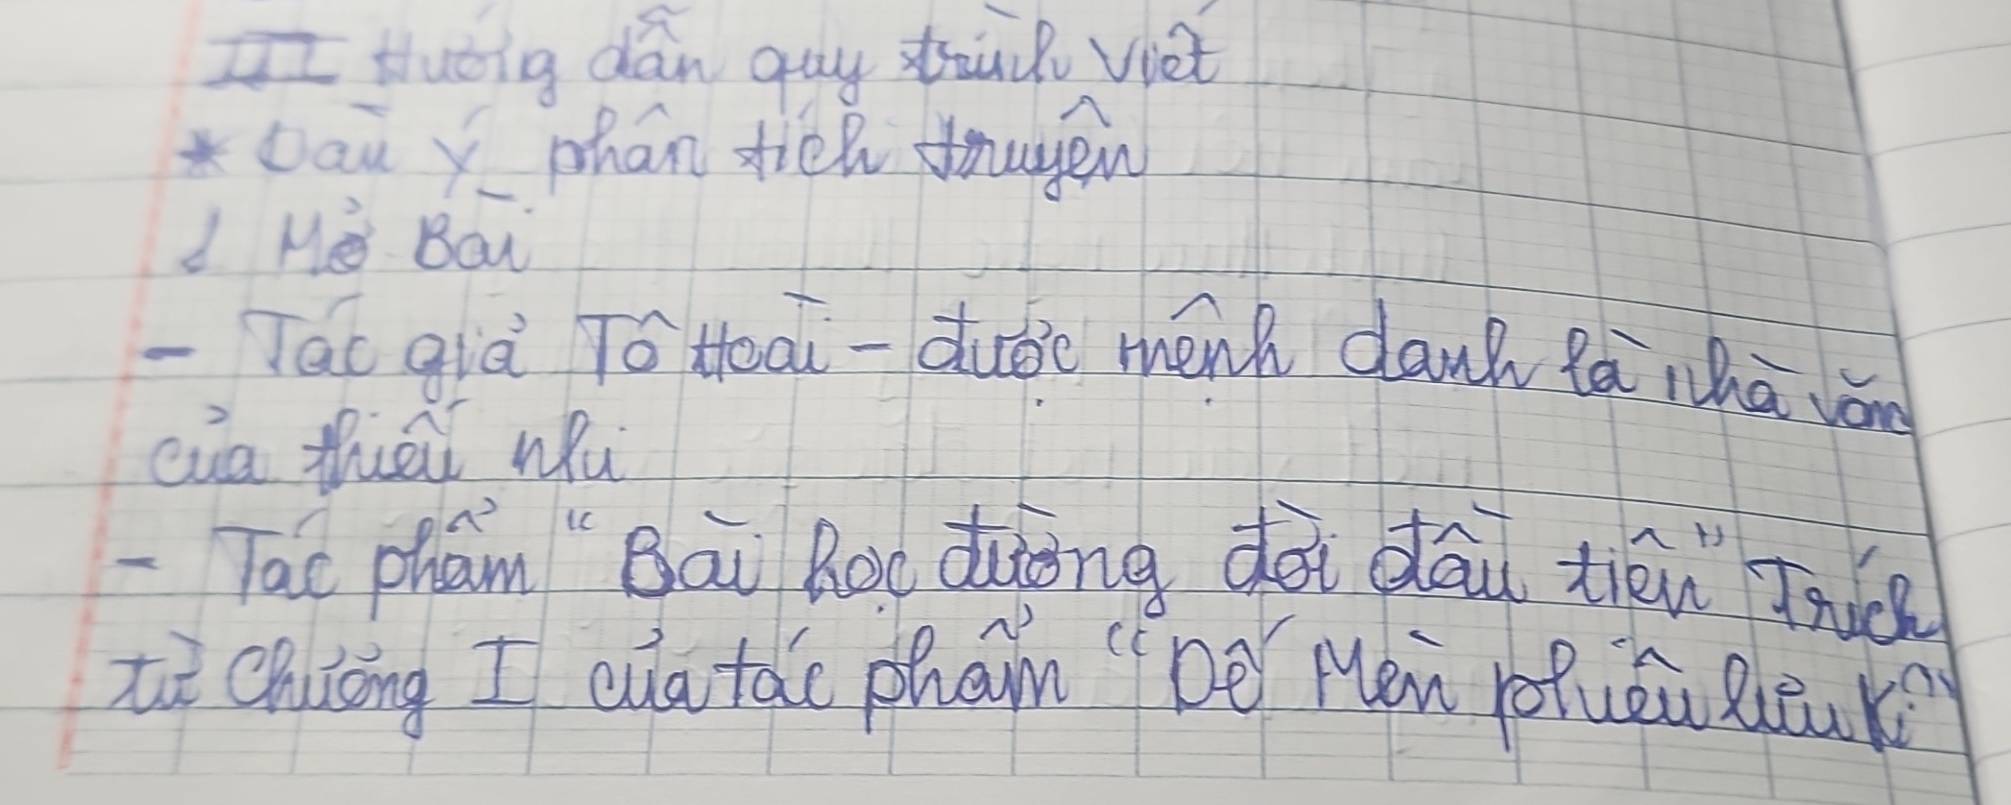 III Hướng dẫn quy trình viết
* Dàn ý phân tích truyện
1 Mở Bài
- Tác giả Tô Hoài - được mệnh danh là nhà văn
của thiếu nhi
- Tác phẩm "Bài học đường đời đầu tiên" Trích
từ Chương I của tác phẩm "Dế Mèn phiêu lưu kí"